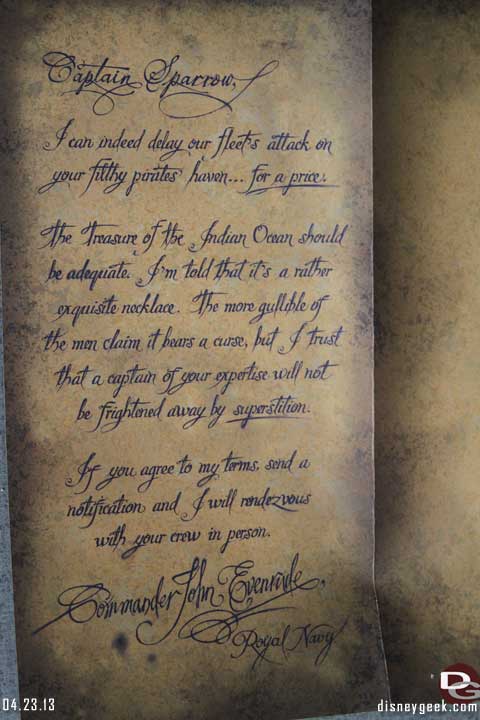 Captain Sparrow,
I can indeed delay our fleet's attack on
your filthy pirates' haven... for a price.
The treasure of the Indian Ocean should
be adequate. I'm told that it's a rather
exquisite necklace. The more gullible of
the men claim it bears a curse, but I trust
that a captain of your expertise will not
be frightened away by superstition.
If you agree to my terms, send a
notification and I will rendezvous
with your crew in person.
Commander John Evenrude,
Royal Navy
04.23.13
DG
disneygeek.com